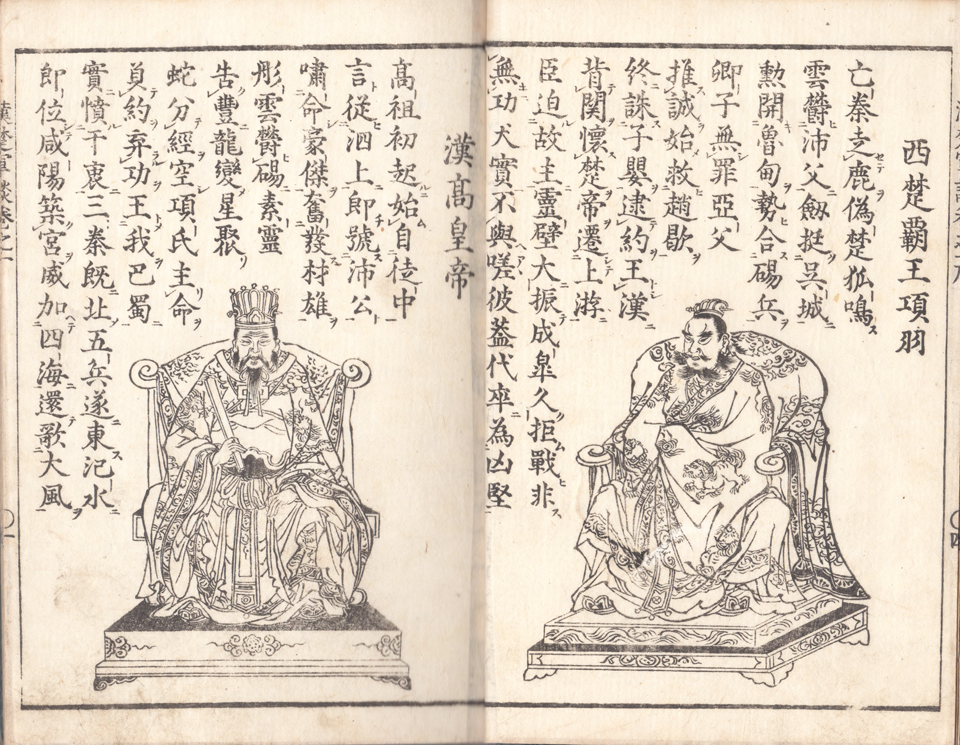 西楚覇王項羽
亡秦走鹿偽楚狐鳴
雲欝沛父劔挺呉城
勲開魯甸勢合碭兵
卿子無罪亞父
推誠始救趙歇
終誅子嬰逮約王漢
背関懐楚帝遷上游
臣迫故主靈壁大振成皐久拒戰非
無功犬實不與嗟彼葢代卒為凶堅
漢髙皇帝
髙祖初起始自徒中
言從泗上即號沛公
嘯命豪傑奮發材雄
彤雲欝碭素靈
告豐龍變星聚
蛇分經空項氏主命
貟約弃功王我巴蜀
實憤于衷三秦既北五兵遂東汜水
即位咸陽築宮威加四海還歌大風